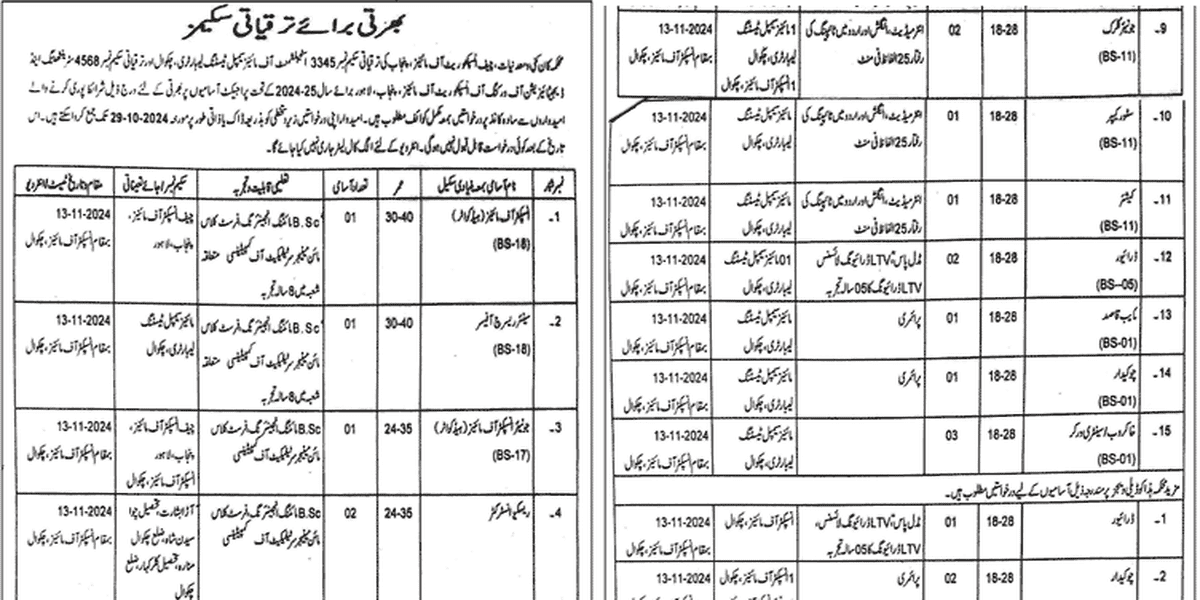 بھرتی برائے ترقیاتی سکیمز
محکمہ کان کنی و معدنیات، چیف انسپکٹوریٹ آف مائینز، پنجاب کی ترقیاتی سکیم نمبر 3345 اسٹیبلشمنٹ آف مائینز سیمپل ٹیسٹنگ لیبارٹری، چکوال اور ترقیاتی سکیم نمبر 4568 سٹرینتھننگ اینڈ
ڈیجیٹائزیشن آف ورکنگ آف انسپکٹوریٹ آف مائینز، پنجاب، لاہور برائے سال 25-2024 کے تحت پراجیکٹ آسامیوں پر بھرتی کے لئے درج ذیل شرائط پوری کرنے والے
امیدواروں سے سادہ کاغذ پر درخواستیں بمعہ مکمل کوائف مطلوب ہیں۔ امیدوار اپنی درخواستیں زیر دستخطی کو بذریعہ ڈاک یا ذاتی طور پر مورخہ 29-10-2024 تک جمع کرا سکتے ہیں۔ اس
تاریخ کے بعد کوئی درخواست قابل قبول نہیں ہوگی۔ انٹرویو کے لئے الگ کال لیٹر جاری نہیں کیا جائے گا۔
نمبر شمار نام آسامی بمعہ بنیادی سکیل عمر تعداد آسامی تعلیمی قابلیت و تجربہ سکیم نمبر/جائے تعیناتی مقام و تاریخ ٹیسٹ/انٹرویو
1۔ انسپکٹر آف مائینز (ہیڈ کوارٹر) 30-40 01 B.Sc مائننگ انجینئرنگ فرسٹ کلاس چیف انسپکٹر آف مائینز، 13-11-2024
(BS-18) مائن مینیجر سرٹیفکیٹ آف کمپیٹینسی متعلقہ پنجاب، لاہور بمقام انسپکٹر آف مائینز، چکوال
شعبہ میں 8 سالہ تجربہ
2۔ سینئر ریسرچ آفیسر 30-40 01 B.Sc مائننگ انجینئرنگ فرسٹ کلاس مائینز سیمپل ٹیسٹنگ 13-11-2024
(BS-18) مائن مینیجر سرٹیفکیٹ آف کمپیٹینسی متعلقہ لیبارٹری، چکوال بمقام انسپکٹر آف مائینز، چکوال
شعبہ میں 8 سالہ تجربہ
3۔ جونیئر انسپکٹر آف مائینز (ہیڈ کوارٹر) 24-35 01 B.Sc مائننگ انجینئرنگ فرسٹ کلاس چیف انسپکٹر آف مائینز، 13-11-2024
(BS-17) مائن مینیجر سرٹیفکیٹ آف کمپیٹینسی پنجاب، لاہور بمقام انسپکٹر آف مائینز، چکوال
انسپکٹر آف مائینز، چکوال
4۔ ریسکیو انسٹرکٹر 24-35 02 B.Sc مائننگ انجینئرنگ فرسٹ کلاس آڑا بشارت، تحصیل چوا 13-11-2024
مائن مینیجر سرٹیفکیٹ آف کمپیٹینسی سیدن شاہ، ضلع چکوال بمقام انسپکٹر آف مائینز، چکوال
منارہ، تحصیل کلر کہار، ضلع
چکوال
9۔ جونیئر کلرک 18-28 02 انٹرمیڈیٹ، انگلش اور اردو میں ٹائپنگ کی 1 مائینز سیمپل ٹیسٹنگ 13-11-2024
(BS-11) رفتار 25 الفاظ فی منٹ لیبارٹری، چکوال بمقام انسپکٹر آف مائینز، چکوال
1 انسپکٹر آف مائینز، چکوال
10۔ سٹور کیپر 18-28 01 انٹرمیڈیٹ، انگلش اور اردو میں ٹائپنگ کی مائینز سیمپل ٹیسٹنگ 13-11-2024
(BS-11) رفتار 25 الفاظ فی منٹ لیبارٹری، چکوال بمقام انسپکٹر آف مائینز، چکوال
11۔ کیشئر 18-28 01 انٹرمیڈیٹ، انگلش اور اردو میں ٹائپنگ کی مائینز سیمپل ٹیسٹنگ 13-11-2024
(BS-11) رفتار 25 الفاظ فی منٹ لیبارٹری، چکوال بمقام انسپکٹر آف مائینز، چکوال
12۔ ڈرائیور 18-28 02 مڈل پاس، LTV ڈرائیونگ لائسنس 01 مائینز سیمپل ٹیسٹنگ 13-11-2024
(BS--05) LTV ڈرائیونگ کا 05 سالہ تجربہ لیبارٹری، چکوال بمقام انسپکٹر آف مائینز، چکوال
13۔ نائب قاصد 18-28 01 پرائمری مائینز سیمپل ٹیسٹنگ 13-11-2024
(BS-01) لیبارٹری، چکوال بمقام انسپکٹر آف مائینز، چکوال
14۔ چوکیدار 18-28 01 پرائمری مائینز سیمپل ٹیسٹنگ 13-11-2024
(BS-01) لیبارٹری، چکوال بمقام انسپکٹر آف مائینز، چکوال
15۔ خاکروب/سینٹری ورکر 18-28 03 مائینز سیمپل ٹیسٹنگ 13-11-2024
(BS-01) لیبارٹری، چکوال بمقام انسپکٹر آف مائینز، چکوال
مزید محکمہ ہذا کو ڈیلی ویجز پر مندرجہ ذیل آسامیوں کے لیے درخواستیں مطلوب ہیں۔
1۔ ڈرائیور 18-28 01 مڈل پاس، LTV ڈرائیونگ لائسنس، انسپکٹر آف مائینز، چکوال 13-11-2024
LTV ڈرائیونگ کا 05 سالہ تجربہ بمقام انسپکٹر آف مائینز، چکوال
2۔ چوکیدار 18-28 02 پرائمری 1 انسپکٹر آف مائینز، چکوال 13-11-2024